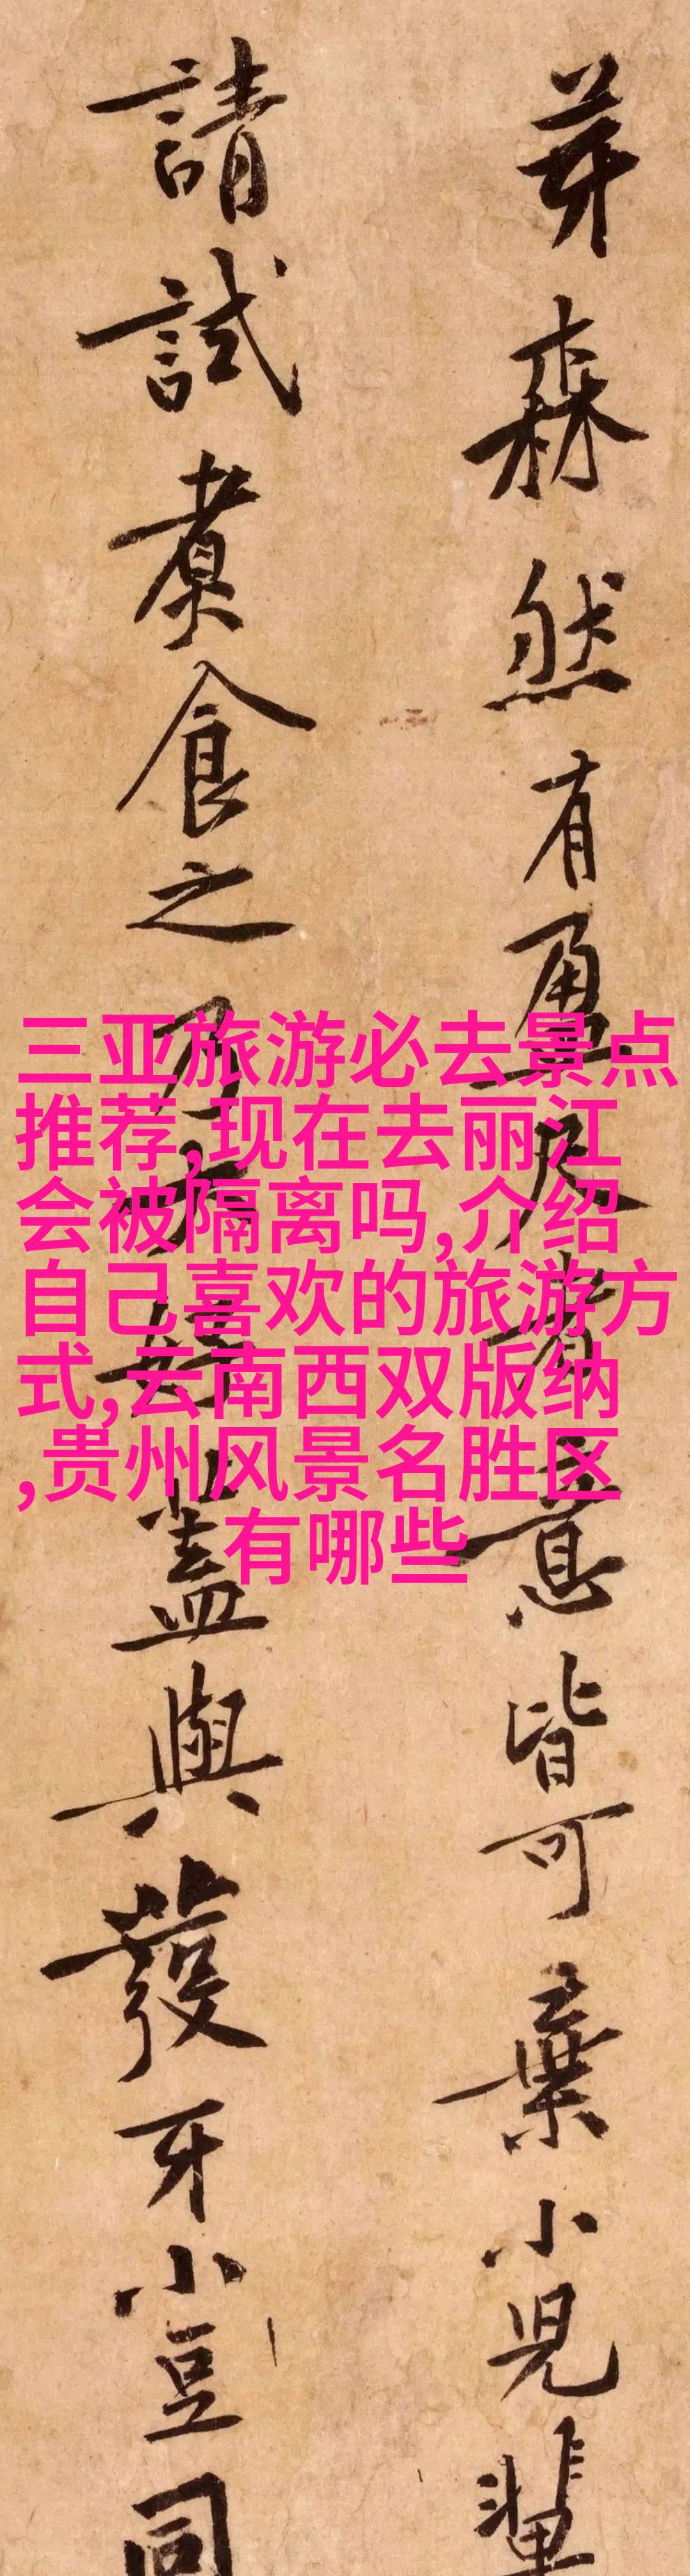 芽森然有盈尺者意皆可棄小兒輩
請試煮食之乃大好蓋與發牙小豆同
三亚旅游必去景点
推荐,现在去丽江
会被隔离吗,介绍
自己喜欢的旅游方
式,云南西双版纳
,贵州风景名胜区
有哪些